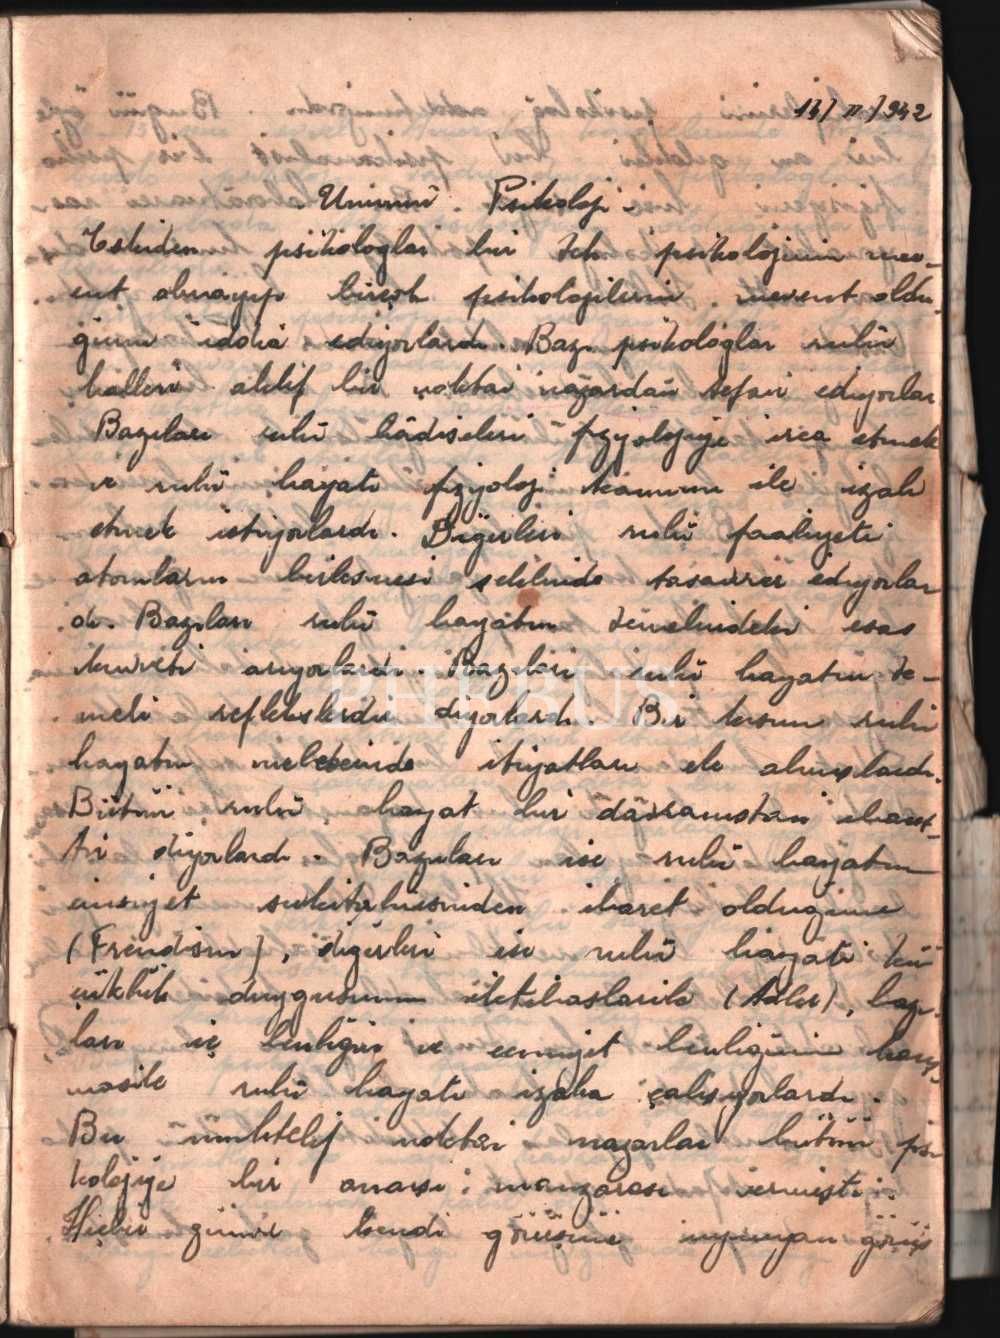 14/ II /942
Umumî Psikoloji
Eskiden psikologlar bir tek psikolojinin mev-
cut olmayıp birçok psikolojilerin mevcut oldu-
ğunu iddia ediyorlardı. Bazı psikologlar ruhî
halleri aktif bir noktai nazardan tefsir ediyorlar
Bazıları ruhî hâdiseleri fizyolojiye irca etmek
ve ruhî hayatı fizyoloji kanunu ile izah
etmek istiyorlardı. Diğerleri ruhî faaliyeti
atomların birleşmesi şeklinde tasavvur ediyorlar
dı. Bazıları ruhî hayatın temelindeki esas
kuvveti arıyorlardı. Bazıları ruhî hayatın te-
meli reflekslerdir diyorlardı. Bir kısmı ruhî
hayatın itiyatları ele almışlardı.
Bütün ruhî hayat bir davranıştan ibaret-
tir diyorlardı. Bazıları ise ruhî hayatın
cinsiyet ibaret olduğunu
(Freudism), diğerleri ise ruhî hayatı kü
çüklük duygusunun (Adler), bazı-
ları ise benliğin ve cemiyet benliğinin
ruhî hayatı izaha çalışıyorlardı.
Bu muhtelif noktai nazarlar bütün psi
kolojiye bir anarşi manzarası vermişti.
Hiçbir zümre kendi görüşüne uymıyan görüş
PHEBUS